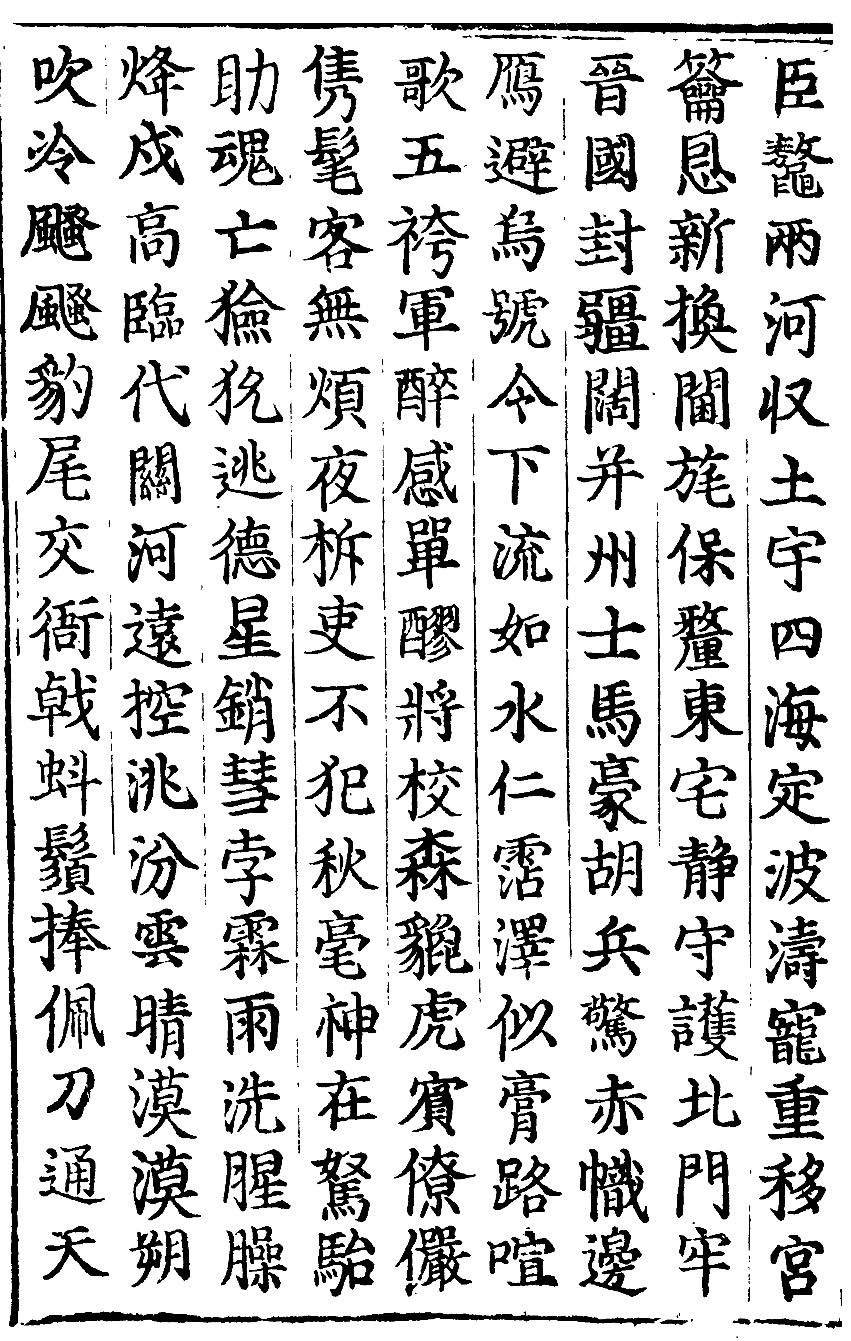 臣鼇兩河収土宇四海定波濤寵重移宮
籥恩新換閫旄保釐東宅静守護北門牢
晉國封疆闊并州士馬豪胡兵驚赤幟邊
鴈避烏號令下流如水仁霑澤似膏路喧
歌五袴軍醉感單醪將校森貔虎賓僚儼
雋髦客無煩夜柝吏不犯秋毫神在駑駘
助魂亡獫狁逃德星銷彗孛霖雨洗腥臊
烽戍高臨代關河遠控洮汾雲晴漠漠朔
吹冷颾颾豹尾交衙戟虯鬚捧佩刀通天